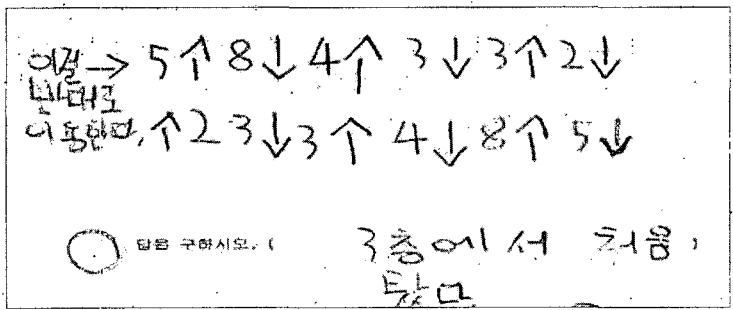 이걸→ 5↑ 8↓ 4↑ 3↓ 3↑ 2↓
반대로
이동한다, ↑2 3↓ 3↑ 4↓ 8↑ 5↓
답을 구하시오. (
3층에서 처음
탔으